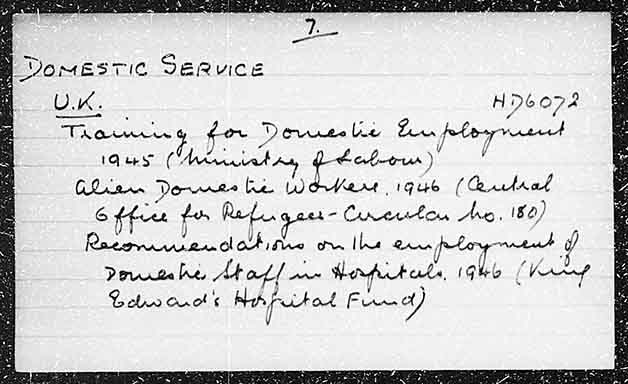 7.
DOMESTIC SERVICE
U.K. HD6072
Training for Domestic Employment
1945 (Ministry of Labour)
Alien Domestic Workers. 1946 (Central
Office for Refugees - Circular No. 180)
Recommendations on the employment of
Domestic Staff in Hospitals. 1946 (King
Edward's Hospital Fund)